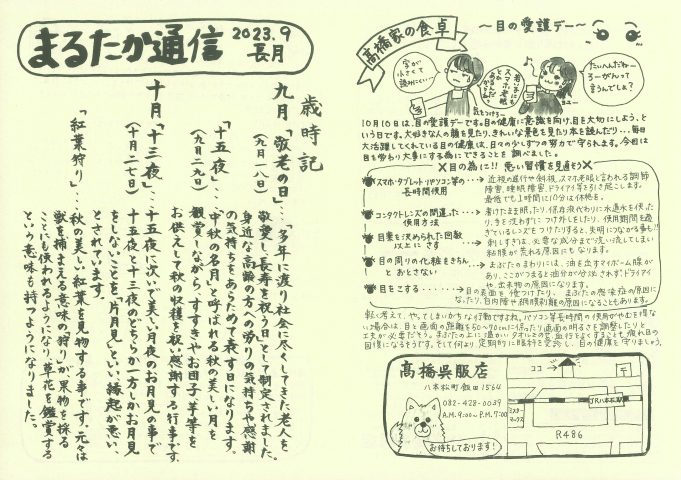 まるたか通信
2023.9
長月
歳時記
九月「敬老の日」…「多年に渡り社会に尽くしてきた老人を
(九月一八日)
敬愛し長寿を祝う日」として制定されました。
身近な高齢の方への労りの気持ちや感謝
の気持ちをあらためて表す日になります。
「十五夜」…「中秋の名月」と呼ばれる秋の美しい月を
(九月二九日)
観賞しながら、すすきやお団子、芋等を
お供えして秋の収穫を祝い感謝する行事です。
十月「十三夜」…十五夜に次いで美しい月夜のお月見の事で
(十月二七日)
十五夜と十三夜のどちらか一方しかお月見
をしないことを「片月見」といい、縁起が悪い、
とされています。
「紅葉狩り」…秋の美しい紅葉を見物する事です。元々は
獣を捕まえる意味の「狩り」が果物を採る
ことにも使われるようになり、草花を鑑賞する
という意味も持つようになりました。
高橋家の食卓
～目の愛護デー～
字が
小さくて
読みにくい…
若い子にも
スマホ老眼
とかあるからね
気をつけろー
たいへんだねー
ろーがんって
まうんでしょ?
10月10日は、目の愛護デーです。目の健康に意識を向け、目を大切にしよう、と
いう日です。大好きな人の顔を見たり、きれいな景色を見たり本を読んだり…毎日
大活躍してくれている目の健康は、日々の少しずつの努力で守られます。今回は
目を労わり大事にする為にできることを調べました。
目の為に!! 悪い習慣を見直そう
スマホ・タブレット・パソコン等の
長時間使用
…近視の進行や斜視、スマホ老眼と言われる調節
障害、睡眠障害、ドライアイ等を引き起こします。
最低でも1時間に10分は休憩を。
コンタクトレンズの間違った
使用方法
…着けたまま眠ったり、保存液代わりに水道水を使った
り、手を洗わずにつけ外しをしたり、使用期間を過
ぎているレンズをつけたりすると、失明につながる事も!!
目薬を決められた回数
以上にさす
…刺しすぎは、必要な成分まで洗い流してしまい
結膜が荒れる原因にもなります。
目の周りの化粧をきちん
とおとさない
…まぶたのまわりには、油を出すマイボーム腺が
あり、ここがつまると油分が分泌されずドライアイ
や、出来物の原因になります。
目をこする
…目の表面を傷つけたり、まぶたの感染症の原因に
なったり、白内障や網膜剥離の原因になることもあります。
軽く考えて、やってしまいがちな行動ですよね。パソコン等長時間の使用がやむを得な
い場合は、目と画面の距離を50～70cmに保ったり画面の明るさを調整したりと
工夫が必要だそう。まぶたの上に温かいタオルをのせ血行をよくすることも、疲れ目の
回復になるそうです。そして何より定期的に眼科を受診し、目の健康を守りましょう。
高橋呉服店
八本松町飯田1564
082-428-0039
A.M.9:00~P.M.7:00
お待ちしております!
ココ
〒
JR八本松
ミスター
マックス
R486